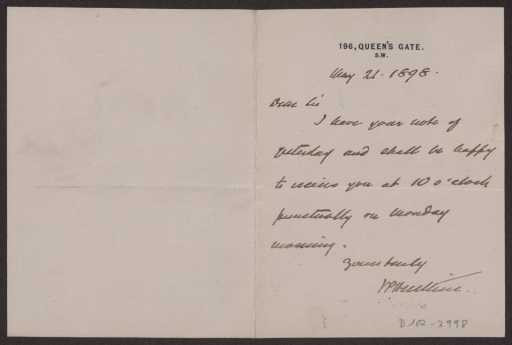 196, QUEEN'S GATE.
S.W.
May 21. 1898.
Dear Sir
I have your note of
yesterday and shall be happy
to receive you at 10 o'clock
punctually on Monday
morning.
Yours truly
D102-2998